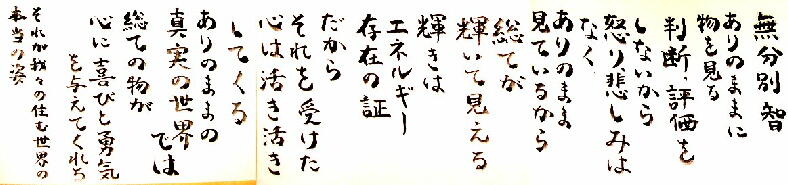 無分別智
ありのままに
物を見る
判断・評価を
しないから
怒り悲しみは
なく
ありのまま
見ているから
総てが
輝いて見える
輝きは
エネルギー
存在の証
だから
それを受けた
心は活き活き
してくる
ありのままの
真実の世界
では
総ての物が
心に喜びと勇気
を与えてくれる
それが我々の住む世界の
本当の姿